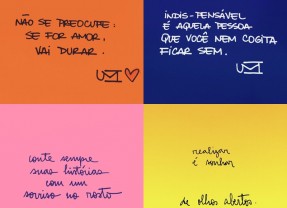 NÃO SE PREOCUPE:
SE FOR AMOR,
VAI DURAR.
INDIS-PENSÁVEL
É AQUELA PESSOA
QUE VOCÊ NEM COGITA
FICAR SEM.
conte sempre
suas histórias
com um
sorriso no rosto
realizar
é sonhar
de olhos abertos.